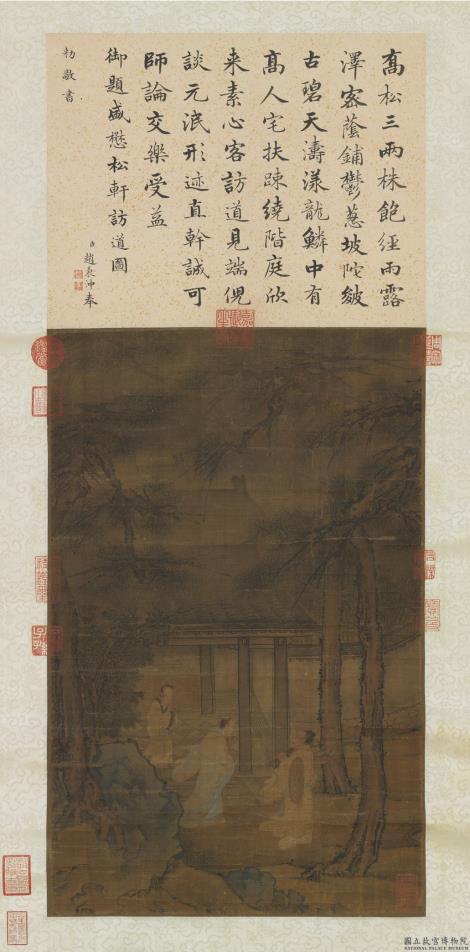 髙松三兩株飽經雨露
澤密蔭鋪鬱葱坡陀皴
古碧天濤漾龍鱗中有
髙人宅扶踈繞階庭欣
来素心客訪道見端倪
談元泯形迹直幹誠可
師論交樂受益
御題盛懋松軒訪道圖
臣趙秉沖奉
勅敬書
國立故宮博物院
NATIONAL PALACE MUSEUM